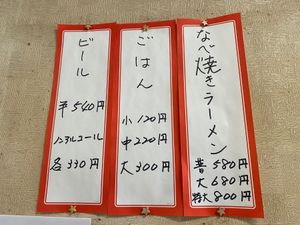 なべ焼きラーメン
普 580円
大 680円
特大 800円
ごはん
小 120円
中 220円
大 300円
ビール
540円
ノンアルコール
各 330円